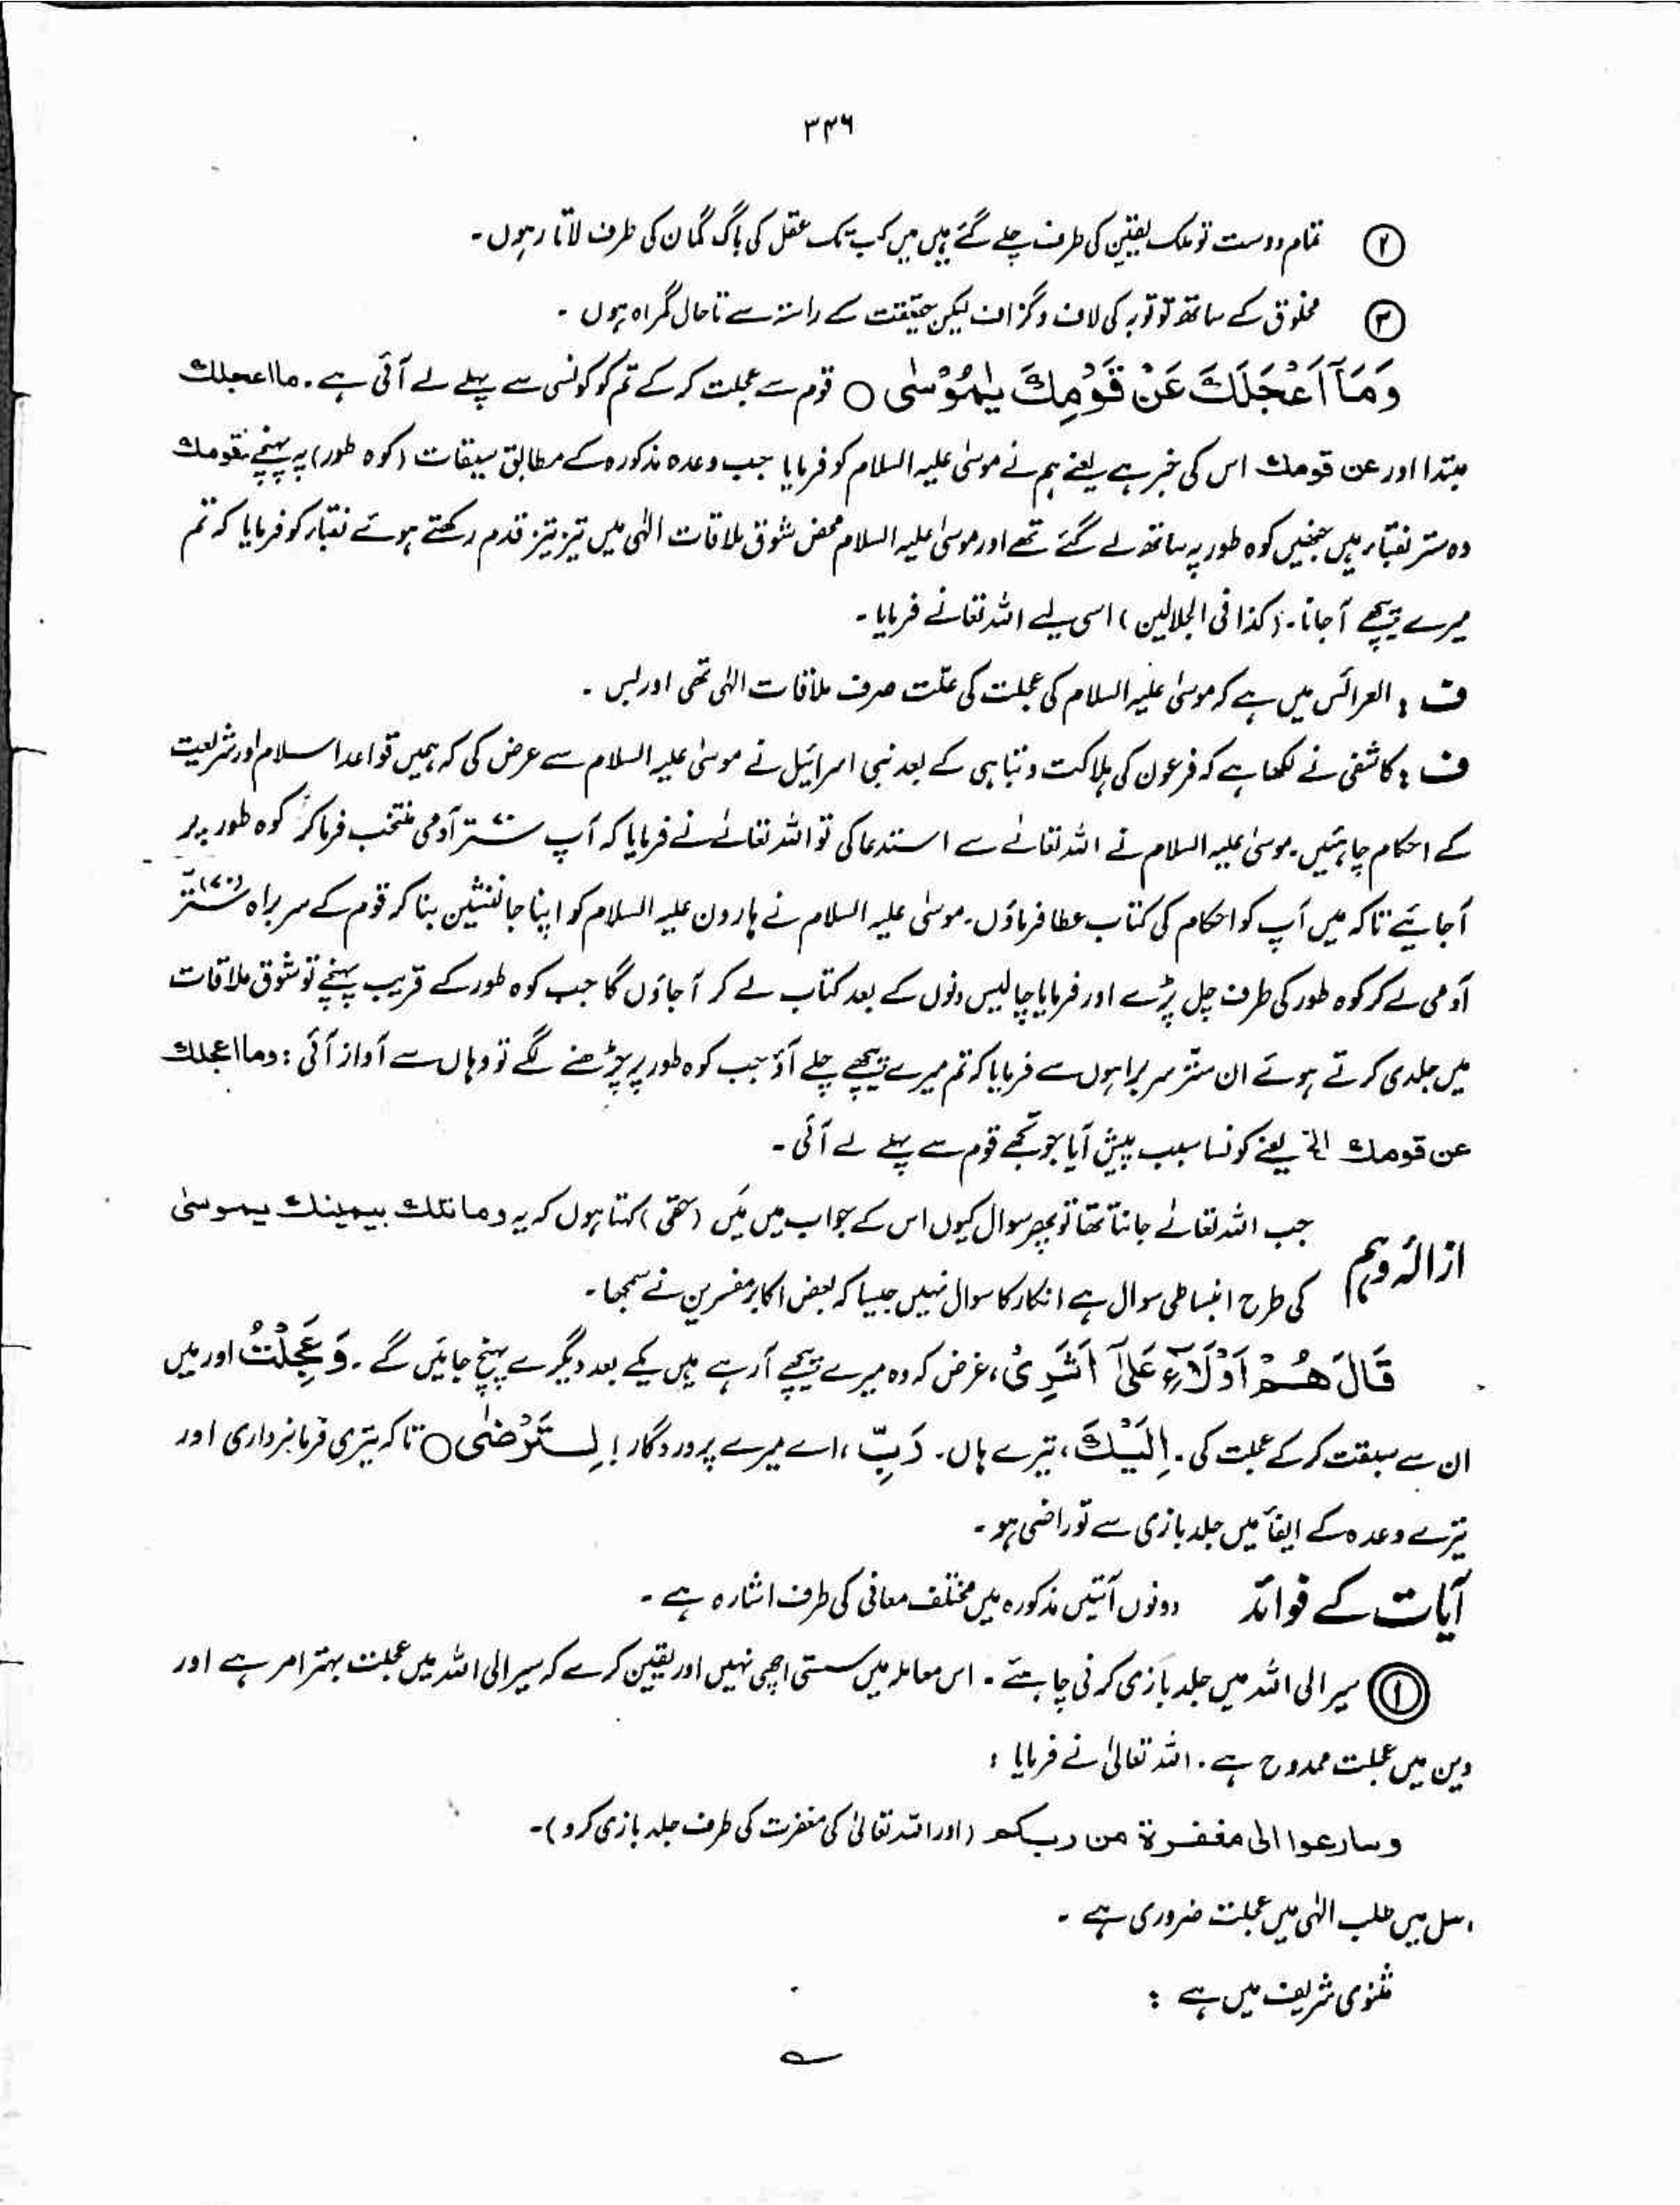 ۳۴۶
② تمام دوست تو ملک یقین کی طرف چلے گئے ہیں میں کب تک عقل کی باگ گمان کی طرف لاتا رہوں۔
③ مخلوق کے ساتھ تو توبہ کی لاف و گزاف لیکن حقیقت کے راستہ سے تاحال گمراہ ہوں ۔
وَمَآ اَعْجَلَكَ عَنْ قَوْمِكَ يٰمُوْسٰى ○ قوم سے عجلت کر کے تم کو کونسی سے پہلے لے آئی ہے۔ ما اعجلك
مبتدا اور عن قومك اس کی خبر ہے یعنے ہم نے موسیٰ علیہ السلام کو فرمایا جب وعدہ مذکورہ کے مطابق میقات (کوہ طور) پہ پہنچے قومك
وہ ستر نقباء ہیں جنھیں کوہ طور پہ ساتھ لے گئے تھے اور موسیٰ علیہ السلام محض شوق ملاقات الٰہی میں تیز تیز قدم رکھتے ہوئے نقباء کو فرمایا کہ تم
میرے پیچھے آجانا۔ (کذا فی الجلالین) اسی لیے اللہ تعالٰے فرمایا ۔
ف : العرائس میں ہے کہ موسیٰ علیہ السلام کی عجلت کی علّت صرف ملاقات الٰہی تھی اور بس ۔
ف : کاشفی نے لکھا ہے کہ فرعون کی ہلاکت و تباہی کے بعد بنی اسرائیل نے موسیٰ علیہ السلام سے عرض کی کہ ہمیں قواعد اسلام اور شریعت
کے احکام چاہئیں۔ موسیٰ علیہ السلام نے اللہ تعالٰے سے استدعا کی تو اللہ تعالٰے نے فرمایا کہ آپ ستر آدمی منتخب فرما کر کوہ طور پر
آجائیے تاکہ میں آپ کو احکام کی کتاب عطا فرماؤں۔ موسیٰ علیہ السلام نے ہارون علیہ السلام کو اپنا جانشین بنا کر قوم کے سربراہ ستّر (۷۰)
آدمی لے کر کوہ طور کی طرف چل پڑے اور فرمایا چالیس دنوں کے بعد کتاب لے کر آجاؤں گا جب کوہ طور کے قریب پہنچے تو شوق ملاقات
میں جلدی کرتے ہوئے ان ستّر سربراہوں سے فرمایا کہ تم میرے پیچھے چلے آؤ جب کوہ طور پر چڑھنے لگے تو وہاں سے آواز آئی : وما اعجلك
عن قومك الخ یعنے کونسا سبب پیش آیا جو تجھے قوم سے پہلے لے آئی ۔
جب اللہ تعالٰے جانتا تھا تو پھر سوال کیوں اس کے جواب میں مَیں (حقی) کہتا ہوں کہ یہ وما تلك بيمينك يموسىٰ
ازالہ وہم کی طرح انبساطی سوال ہے انکار کا سوال نہیں جیسا کہ بعض اکابر مفسرین نے سمجھا ۔
قَالَ هُمْ اُولَآءِ عَلٰٓى اَثَرِىْ، غرض کہ وہ میرے پیچھے آرہے ہیں یکے بعد دیگرے پہنچ جائیں گے ۔ وَعَجِلْتُ اور میں
ان سے سبقت کر کے عجلت کی۔ اِلَيْكَ، تیرے ہاں۔ رَبِّ، اے میرے پروردگار! لِتَرْضٰى ○ تاکہ تیری فرمانبرداری اور
تیرے وعدہ کے ایفأ میں جلد بازی سے تو راضی ہو ۔
آیات کے فوائد دونوں آیتیں مذکورہ میں مختلف معانی کی طرف اشارہ ہے ۔
① سیر الی اللہ میں جلد بازی کرنی چاہئے ۔ اس معاملہ میں سستی اچھی نہیں اور یقین کرے کہ سیر الی اللہ میں عجلت بہتر امر ہے اور
دین میں عجلت ممدوح ہے۔ اللہ تعالیٰ نے فرمایا :
وسارعوا الى مغفرة من ربكم (اور اللہ تعالیٰ کی مغفرت کی طرف جلد بازی کرو)۔
اصل میں طلب الٰہی میں عجلت ضروری ہے ۔
مثنوی شریف میں ہے :